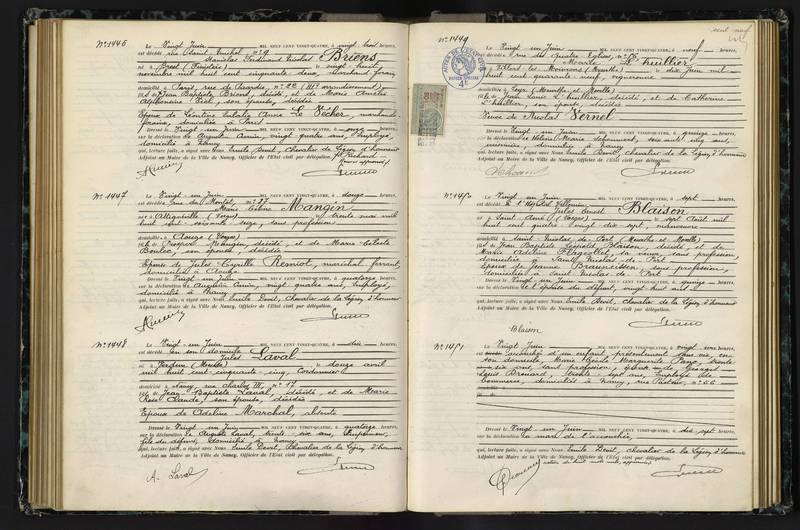 N° 1446
Le Vingt Juin MIL NEUF CENT VINGT-QUATRE, à vingt trois heures,
est décédé rue Saint Michel n° 9
Stanislas Ferdinand Nicolas Briens
à Brest (Finistère) le vingt huit
novembre mil huit cent cinquante deux, marchand forain
domicilié à Paris, rue n° 22
fils de Jean Baptiste Briens, décédé, et de Marie Amélie
Alphonsine son épouse, décédée
Epoux de Léontine Eulalie Anne Le Vêcher, marchande
foraine, domiciliée à Paris
Dressé le Vingt un Juin MIL NEUF CENT VINGT-QUATRE, à onze heures,
sur la déclaration de Auguste vingt quatre ans, employé,
domicilié à Nancy
qui, lecture faite, a signé avec Nous Emile Devit, Chevalier de la Légion d'honneur
Adjoint au Maire de la Ville de Nancy, Officier de l'Etat civil par délégation.
N° 1447
Le Vingt un Juin MIL NEUF CENT VINGT-QUATRE, à douze heures,
est décédée rue du Montet, n° 27
Marie Céline Mangin
née à Attignéville (Vosges) le trente mai mil
huit cent soixante seize, sans profession
domiciliée à (Vosges)
fille de Prosper Mangin, décédé, et de Marie Céleste
Boulée, son épouse, décédée
Epouse de Jules Cyrille Remiot, maréchal ferrant,
domicilié à
Dressé le Vingt un Juin MIL NEUF CENT VINGT-QUATRE, à quatorze heures,
sur la déclaration de Auguste vingt quatre ans, employé,
domicilié à Nancy
qui, lecture faite, a signé avec Nous Emile Devit, Chevalier de la Légion d'honneur
Adjoint au Maire de la Ville de Nancy, Officier de l'Etat civil par délégation.
N° 1448
Le Vingt un Juin MIL NEUF CENT VINGT-QUATRE, à dix heures,
est décédé en son domicile
Jules Laval
né à Verdun (Meuse) le douze avril
mil huit cent cinquante-cinq, Cordonnier
domicilié à Nancy, rue Charles III, n° 17
fils de Jean-Baptiste Laval, décédé et de Marie
Rose Claude, son épouse, décédée
Epoux de Adeline Marchal, absente
Dressé le Vingt un Juin MIL NEUF CENT VINGT-QUATRE, à quatorze heures,
sur la déclaration de Auguste Laval, trente six ans,
fils du défunt, domicilié à Nancy
qui, lecture faite, a signé avec Nous Emile Devit, Chevalier de la Légion d'honneur
Adjoint au Maire de la Ville de Nancy, Officier de l'Etat civil par délégation.
A. Laval
cent neuf
N° 1449
Le Vingt un Juin MIL NEUF CENT VINGT-QUATRE, à neuf heures,
est décédée rue des Quatre Eglises, n° 56
Marie L'huillier
née à (Meurthe) le dix juin mil
huit cent quarante neuf, vigneronne
domiciliée à (Meurthe et Moselle)
fille de Jean Louis L'huillier, décédé, et de Catherine
L'huillier, son épouse, décédée
Veuve de Nicolas Vernel
Dressé le Vingt un Juin MIL NEUF CENT VINGT-QUATRE, à quinze heures,
domicilié à Nancy
qui, lecture faite, a signé avec Nous Emile Devit, Chevalier de la Légion d'honneur
Adjoint au Maire de la Ville de Nancy, Officier de l'Etat civil par délégation.
N° 1450
Le Vingt un Juin MIL NEUF CENT VINGT-QUATRE, à sept heures,
est décédé à l'Hôpital Villemin
Jules Ernest Blaison
né à Saint Amé (Vosges) le sept Août mil
huit cent quatre vingt dix sept, manoeuvre
domicilié à Saint Nicolas de Port (Meurthe et Moselle)
fils de Jean Baptiste Léopold Blaison, décédé, et de
Marie Adeline sa veuve, sans profession,
domiciliée à Saint Nicolas de Port
Epoux de Jeanne sans profession,
domiciliée à Saint Nicolas de Port
Dressé le Vingt un Juin MIL NEUF CENT VINGT-QUATRE, à heures,
sur la déclaration de l'épouse du défunt, vingt huit ans
qui, lecture faite, a signé avec Nous Emile Devit, Chevalier de la Légion d'honneur
Adjoint au Maire de la Ville de Nancy, Officier de l'Etat civil par délégation.
Blaison
N° 1451
Le Vingt Juin MIL NEUF CENT VINGT-QUATRE, à vingt une heures,
est accouchée d'un enfant, présentement sans vie, en
son domicile, Marie Marguerite trente
six ans, sans profession, épouse de Georges
Louis trente sept ans, employé de
Commerce, domiciliés à Nancy, rue Pasteur, n° 66
Dressé le Vingt un Juin MIL NEUF CENT VINGT-QUATRE, à dix sept heures,
sur la déclaration du mari de l'accouchée,
qui, lecture faite, a signé avec Nous Emile Devit, chevalier de la Légion d'honneur
Adjoint au Maire de la Ville de Nancy, Officier de l'Etat civil par délégation.